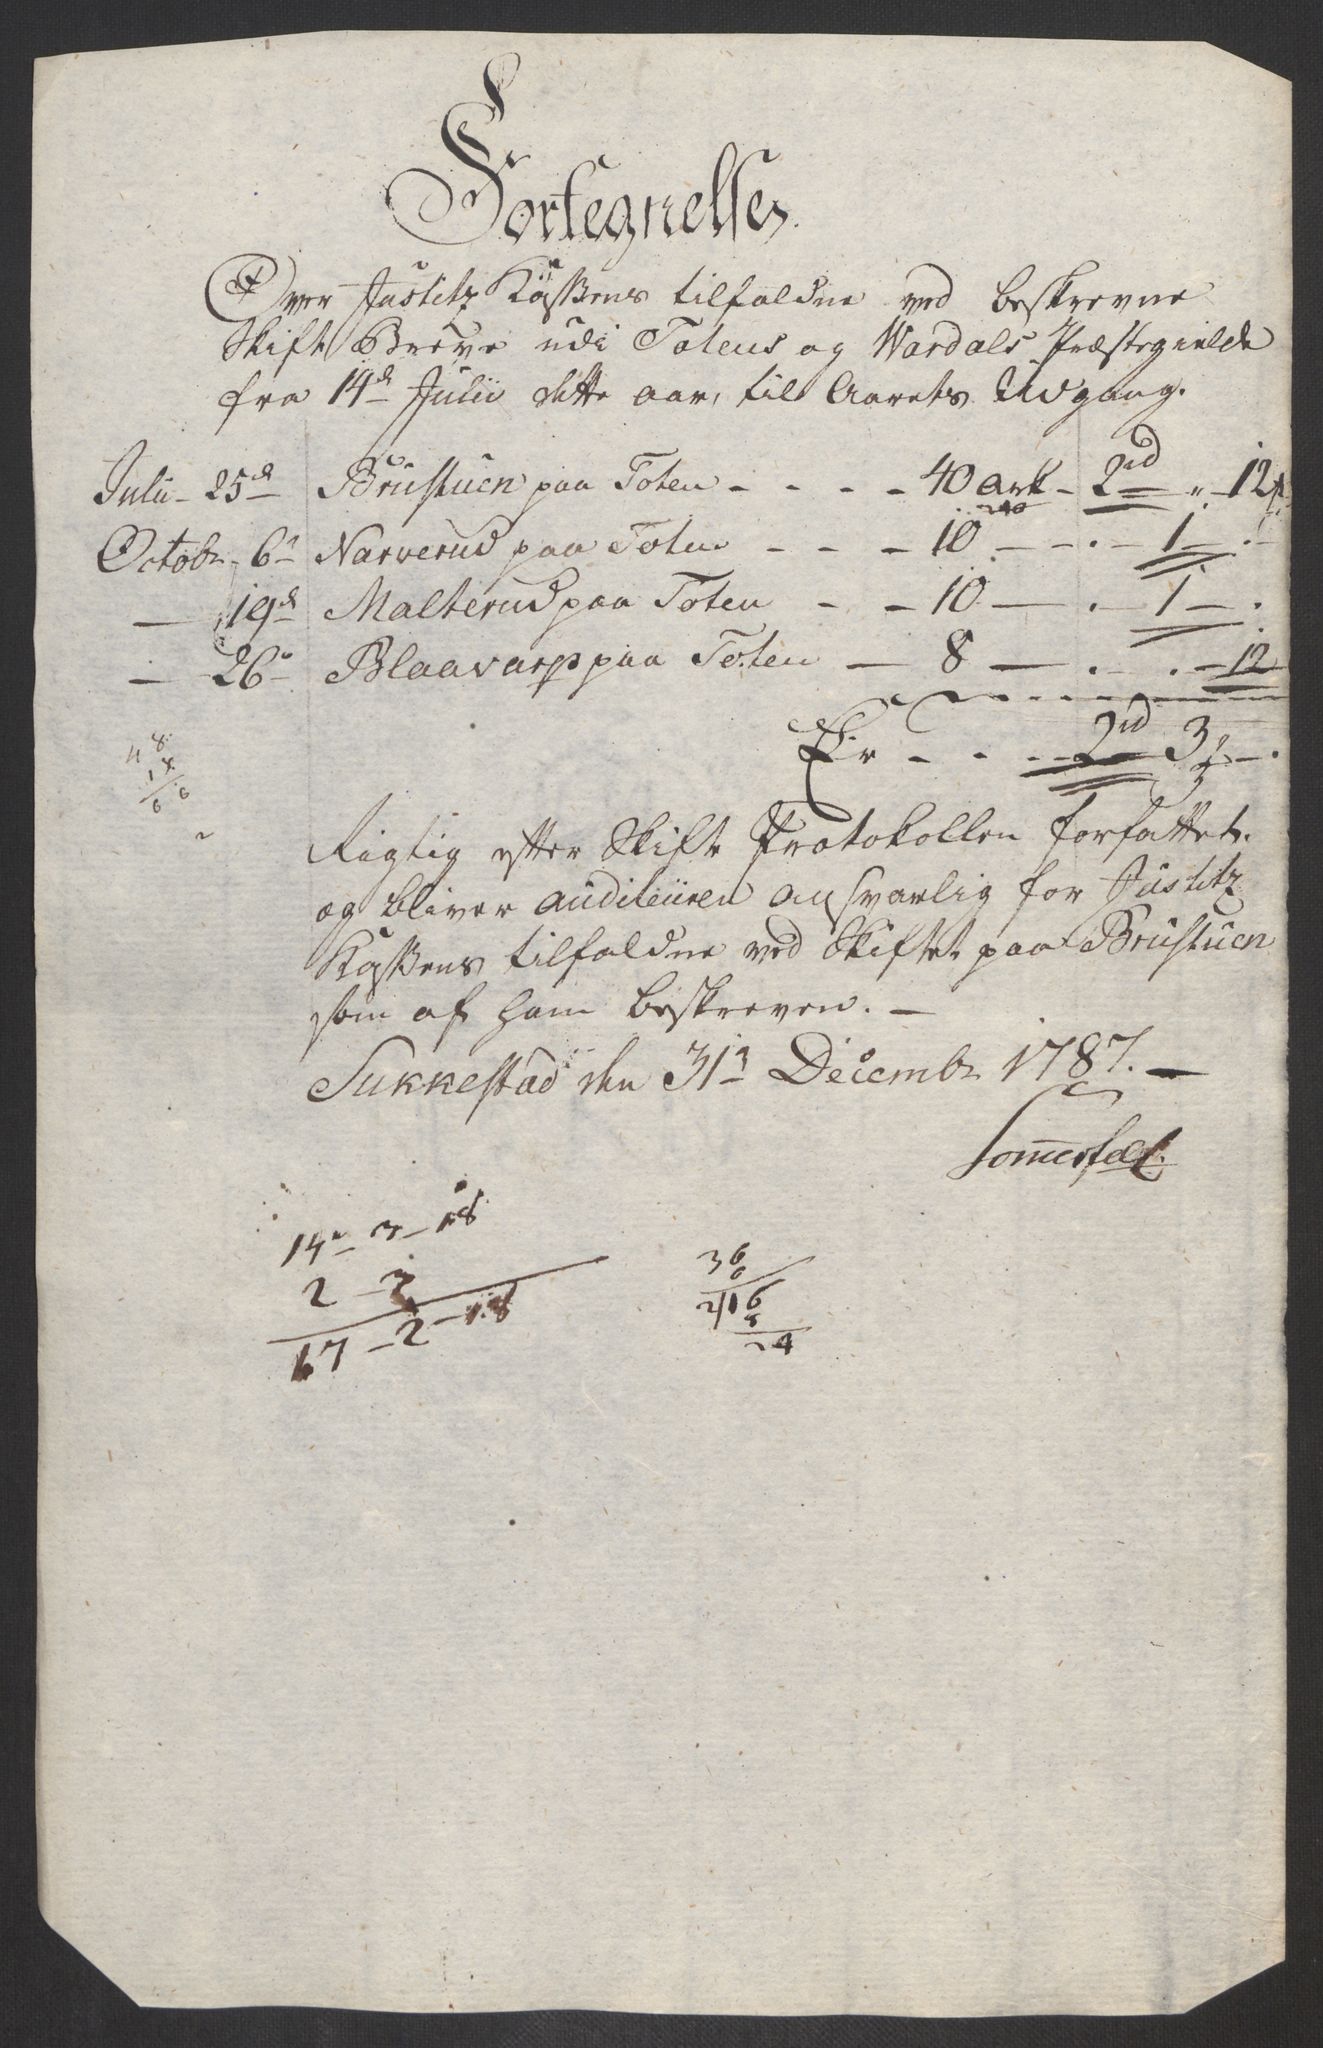 Fortegnelse,
Over Justitz Kaßens tilfaldne ved beskrevne
Skifte Breve udi Totens og Wardals Præstegields
fra 14de Julii dette aar, til Aarets Udgang.
Julii - 25d Brustuen paa Toten - - - - 40 ark - 2rd „ - 12s
240
Octobr - 6te Narverud paa Toten - - - 10 - - . - 1 - . -
— 19d Malterud paa Toten - - 10 — . - 1 - .
— 26e Blaavarp paa Toten — 8 — . - . - 12
Er - - . - 2rd 3 - .
48
18
66
Rigtig efter Skifte Protokollen forfattet.
og bliver auditeuren ansvarlig for Justitz
Kaßens tilfaldne ved Skiftet paa Brustuen
som af ham beskreven. —
Sukkestad den 31te Decembr 1787. —
Somerfelt.
14 - 3 - 18
2 - 3
17 - 2 - 18
36
6
216
24